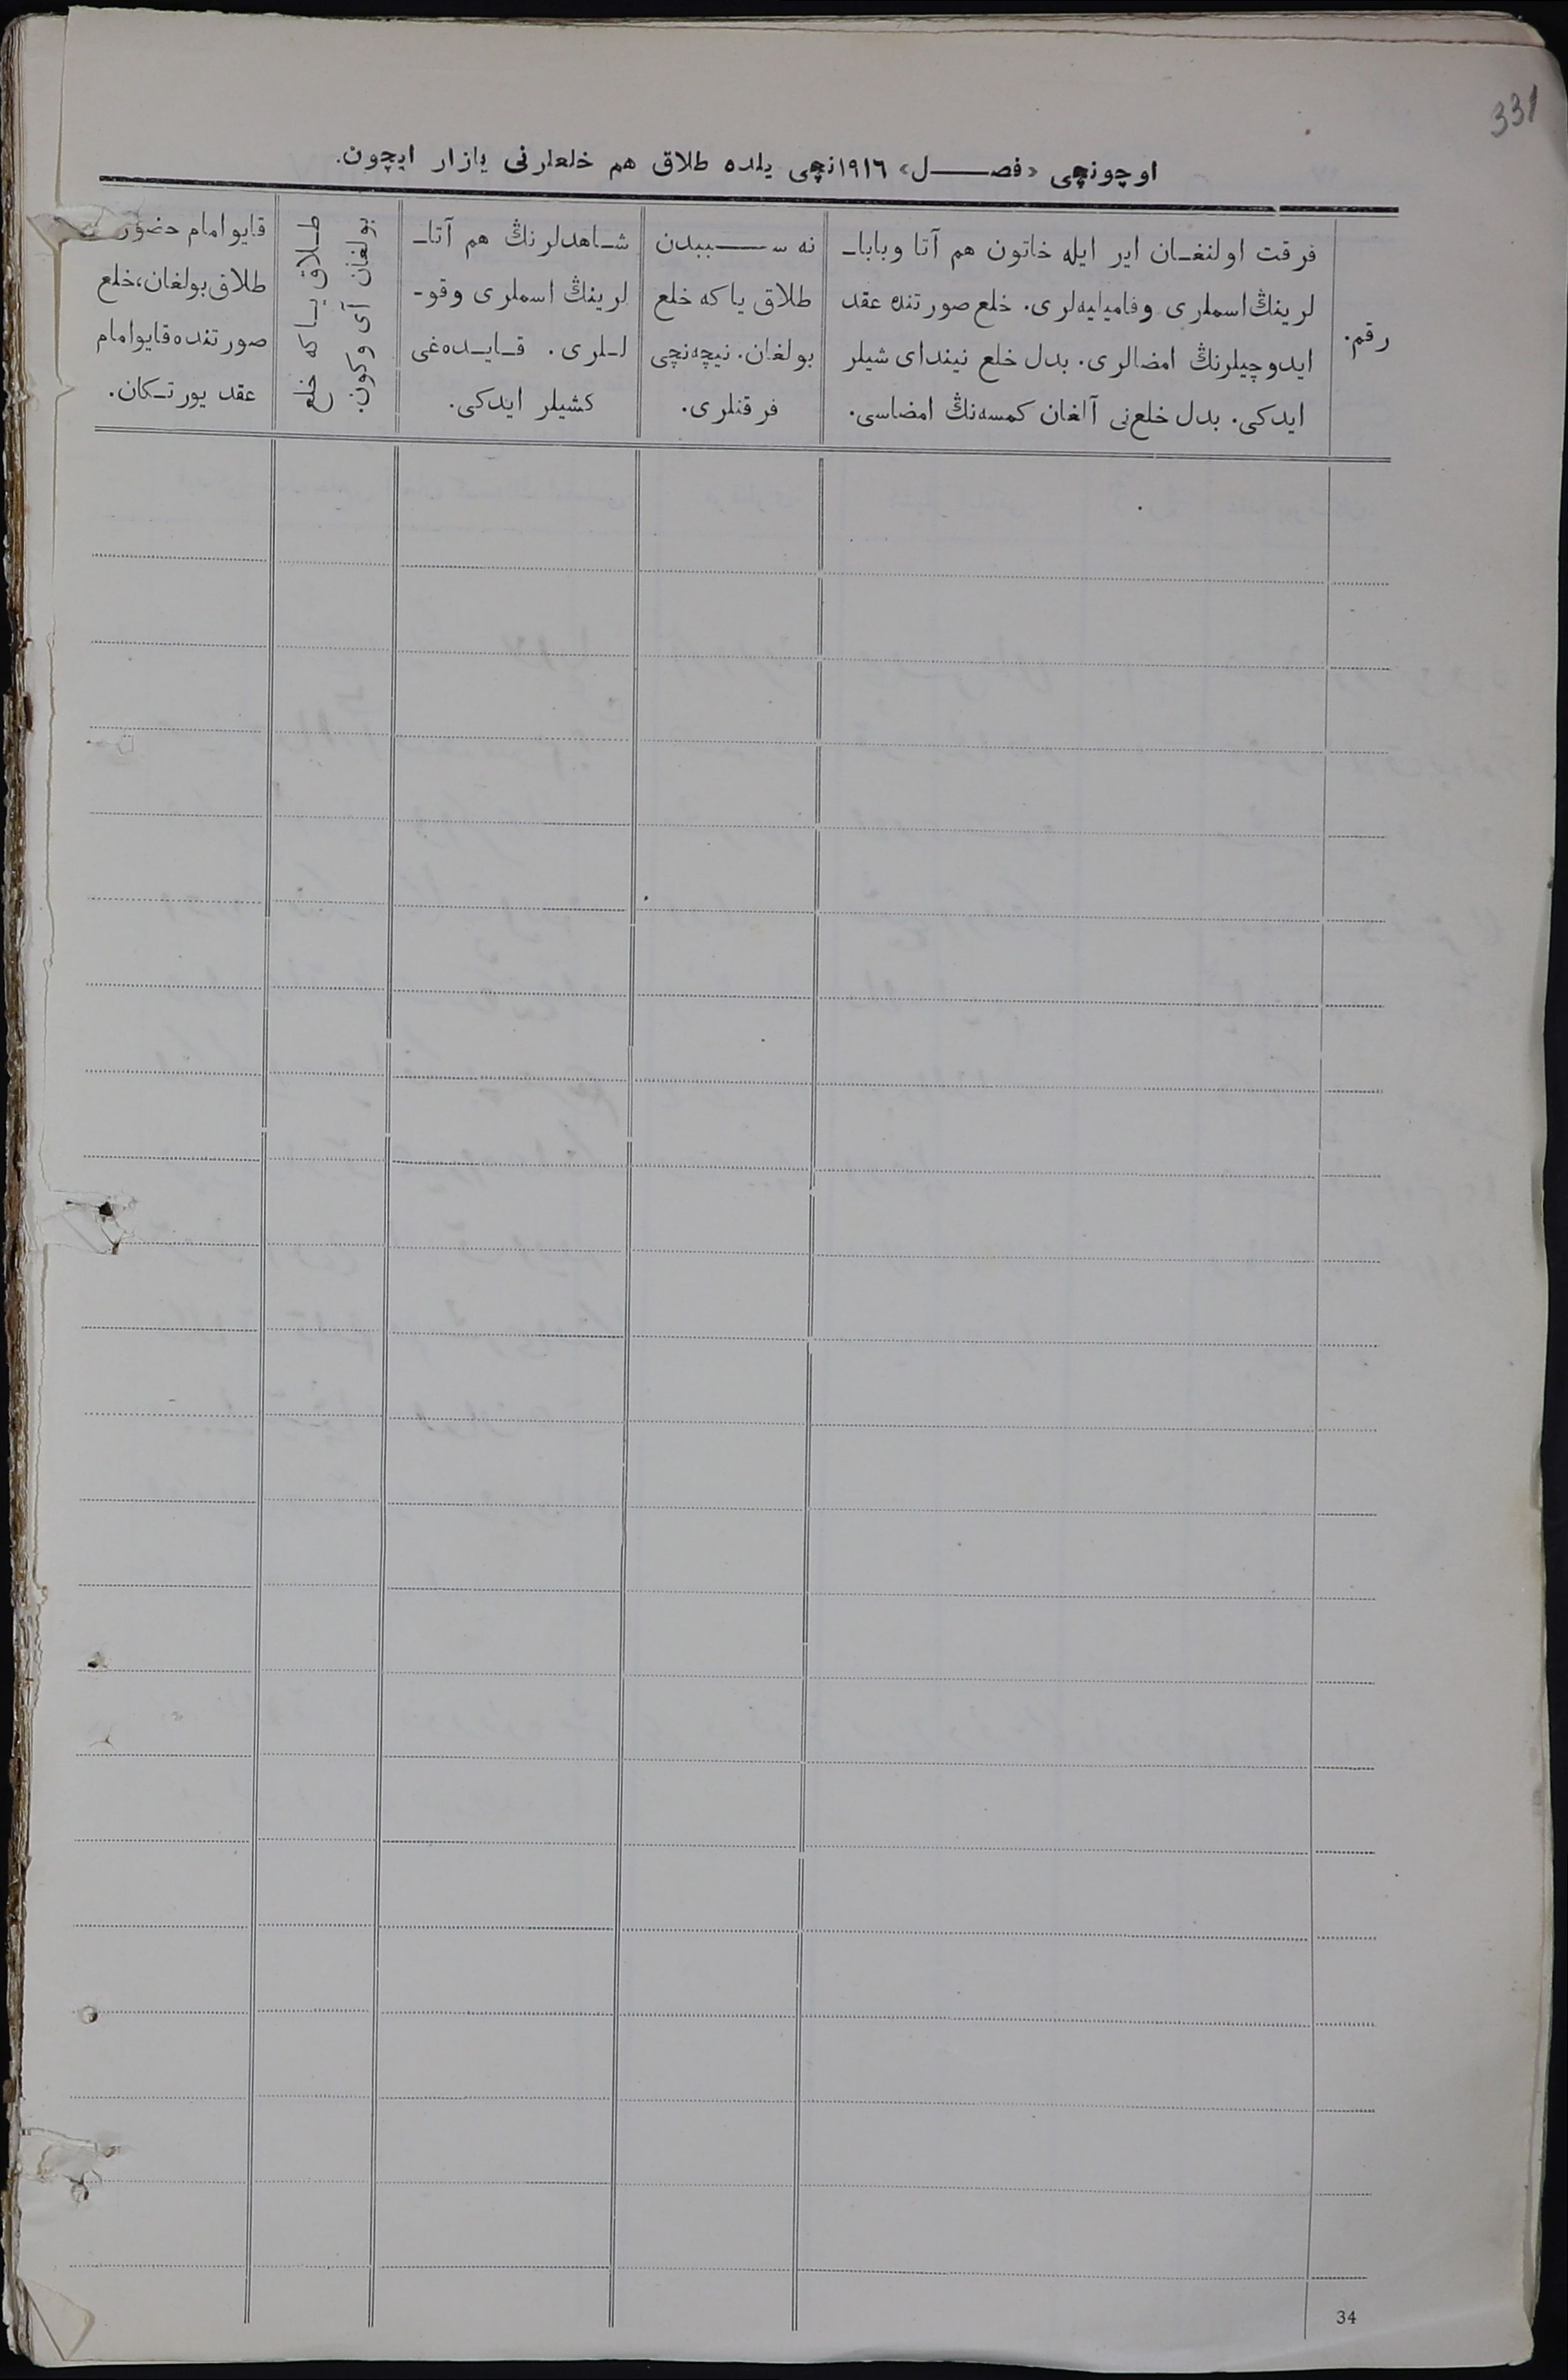 331
اوچونچی «فصـــل» ١٩١٦نچی یلده طلاق هم خلعلرنی یازار ایچون.
رقم.
فرقت اولنغـان ایر ایله خاتون هم آتا وبابا-
لرینڭ اسملری وفامیلیه‌لری. خلع صورتنده عقد
ایدوچیلرنڭ امضالری. بدل خلع نیندای شیلر
ایدکی. بدل خلع‌نی آلغان کمسه‌نڭ امضاسی.
نه ســـببدن
طلاق یا که خلع
بولغان. نیچه‌نچی
فرقتلری.
شـاهدلرنڭ هم آتا-
لرینڭ اسملری وقو-
لـلری. قـایـده‌غی
کشیلر ایدکی.
طـلاق یـا که خلع
بولغان آی وکون.
قایو امام حضور
طلاق بولغان، خلع
صورتنده قایو امام
عقد یورتـکان.
34